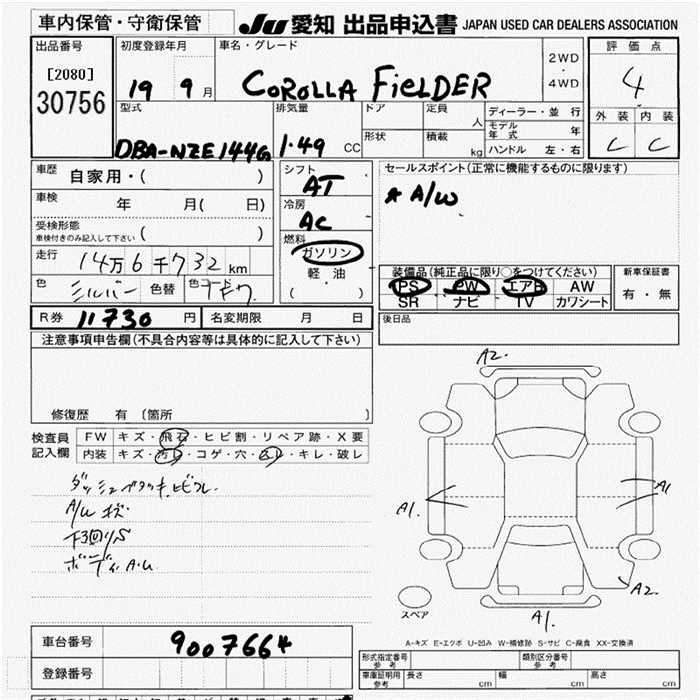 車内保管・守衛保管 JU 愛知 出品申込書 JAPAN USED CAR DEALERS ASSOCIATION
出品番号 初度登録年月 車名・グレード 評価点
[2080] 2WD・4WD
30756 19 9月 COROLLA FIELDER 4
型式 排気量 ドア 定員 人 ディーラー・並行 外装 内装
モデル年式 年
DBA-NZE144G 1.49 CC 形状 積載 kg ハンドル 左・右 C C
車歴 自家用・( ) シフト AT セールスポイント(正常に機能するものに限ります)
車検 年 月( 日) 冷房 AC ★ A/W
受検形態 ( )
車検付きのみ記入して下さい
燃料 ガソリン
走行 14万6千732km 軽油 装備品(純正品に限り○をつけてください) 新車保証書
色 シルバー 色替 色コード ( ) PS PW エアB AW 有・無
SR ナビ TV カワシート
R券 11730円 名変期限 月 日 後日品
注意事項申告欄(不具合内容等は具体的に記入して下さい)
A2.
修復歴 有 [箇所 ]
検査員 FW キズ・飛石・ヒビ割・リペア跡・X要
記入欄 内装 キズ・汚レ・コゲ・穴・スレ・キレ・破レ
A/W キズ
A1. A1
下回りS
ボーディA.U
A2.
スペア
A1.
A-キズ E-エクボ U-凹み W-補修跡 S-サビ C-腐食 XX-交換済
車台番号 9007664
形式指定番号 参考 類別区分番号 参考
登録番号 車庫証明用 参考 長さ cm 幅 cm 高さ cm